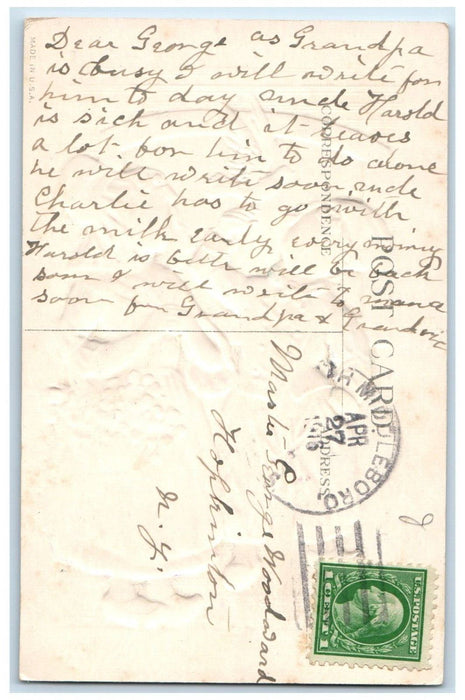 MADE IN U.S.A.
Dear George as Grandpa
is busy I will write for
him to day uncle Harold
is sick and it leaves
a lot for him to do alone
he will write soon. uncle
Charlie has to go with
the milk early every
Harold is will be back
soon I will write to mama
soon from Grandpa &
CORRESPONDENCE
POST CARD
ADDRESS
Master George Woodward
Hopkinton
N.Y.
APR
27
1916
U.S. POSTAGE
1 CENT 1